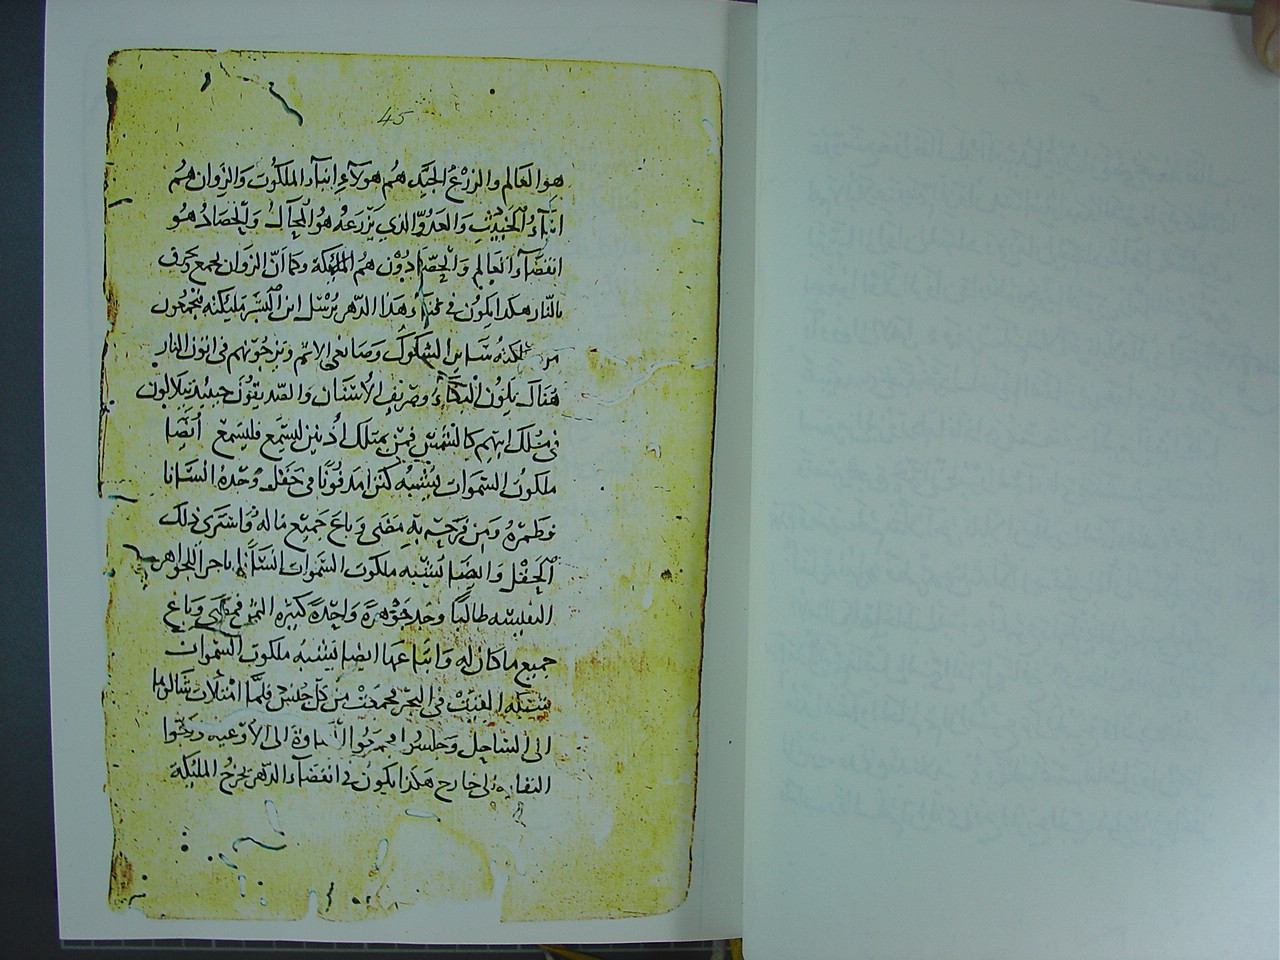 45
هو العالم والزرع الجيد هم هولاءِ ابنآء الملكوت والزوان هم
ابنآءُ الخبيثِ والعدوّ الذي يزرعهُ هو المحال والحصادُ هو
انقضآء العالم والحصّادون هم المليكة وكما أنّ الزوان يجمع يحرق
بالنّار هكذا يكون في فنآء هذا الدّهر يُرسل ابن البشر مليكته فيجمعون
من مملكته سآير الشكوك وصانعي الاثم ويزجونهم في اتون النار
هُناك يكون البكآءُ وصريف الاسنان والصديقون حينيذ يتلالون
في مُلك ابيهم كالشمس فمن يمتلك أذنين ليسمع فليسمع أيضًا
ملكوت السموات يُشبه كنزا مدفونًا في حقل وُجدهُ انسانا
فطمرهُ ومن فرحه بهِ مضى وباع جميع ماله وُاشترى ذلك
الحقل وايضا يُشبه ملكوت السموات انسانًا تاجر الجواهر
النفيسه طالبًا وجد جوهرة واحدة كثيره الثمن فمضى وباع
جميع ما كان له وابتاعها ايضا يُشبهُ ملكوت السموات
شبكه القيت في البحر فجمعت من كل جنس فلمّا امتلات شالوها
الى الساحل وجلسوا فجمعوا النقاوة الى الاوعيه ورموا
النفايه الى خارج هكذا يكون في انقضآء الدّهر تخرجُ المليكة